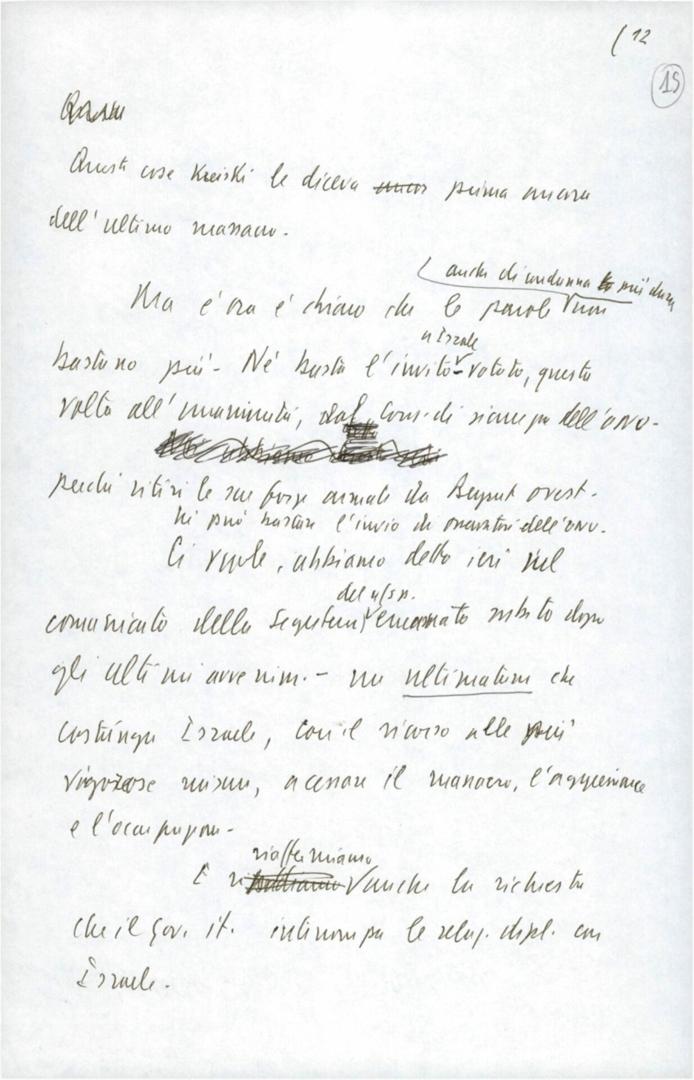 (12
15
Queste cose Kreiski le diceva prima ancora
dell'ultimo massacro.
anche di condanna più dura
Ma è ora è chiaro che le parole non
a Israele
bastano più. Né basta l'invito votato, questa
volta all'unanimità, dal Cons. di sicurezza dell'ONU.
perché ritiri le sue forze armate da Beyrut ovest.
Né può bastare l'invio di osservatori dell'ONU.
Ci vuole, abbiamo detto ieri nel
del n/s p.
comunicato della Segreteria emanato subito dopo
gli ultimi avvenim. - un ultimatum che
costringa Israele, con il ricorso alle più
vigorose misure, a cessare il massacro, l'aggressione
e l'occupazione.
riaffermiamo
E anche la richiesta
che il gov. it. interrompa le relaz. dipl. con
Israele.